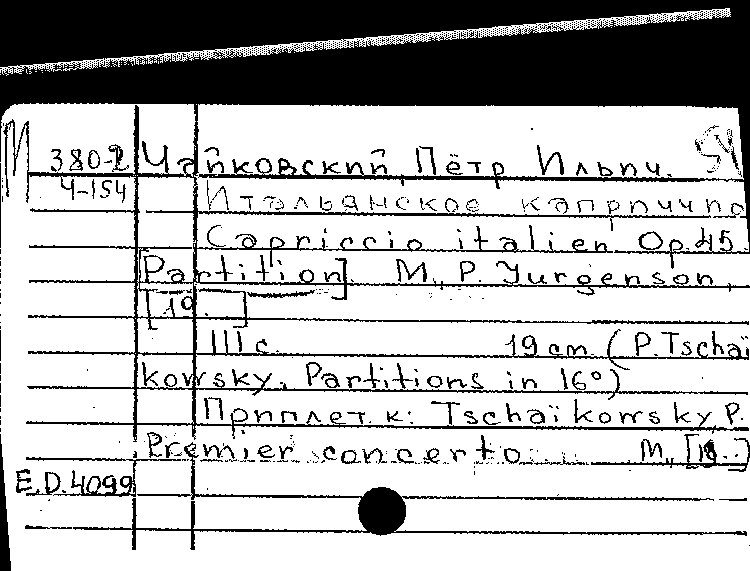 М 380-2 Чайковский, Пётр Ильич. 54
Ч-154 Итальянское каприччио
Capriccio italien Op.45.
[Partition]. М., P. Yurgenson,
[19 ]
111 с. 19 cm (P. Tschaï
kowsky. Partitions in 16°)
Приплет. к: Tschaïkowsky, P.
Premier concerto ... М., [19..]
E.D.4099